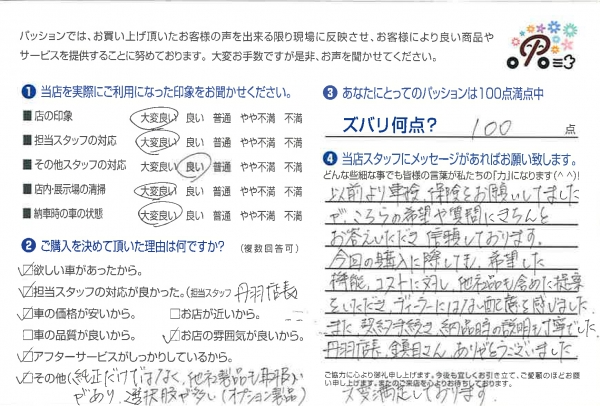 パッションでは、お買い上げ頂いたお客様の声を出来る限り現場に反映させ、お客様により良い商品や
サービスを提供することに努めております。大変お手数ですが是非、お声を聞かせてください。
❶ 当店を実際にご利用になった印象をお聞かせください。
■店の印象 大変良い 良い 普通 やや不満 不満
■担当スタッフの対応 大変良い 良い 普通 やや不満 不満
■その他スタッフの対応 大変良い 良い 普通 やや不満 不満
■店内・展示場の清掃 大変良い 良い 普通 やや不満 不満
■納車時の車の状態 大変良い 良い 普通 やや不満 不満
❷ ご購入を決めて頂いた理由は何ですか? (複数回答可)
☑欲しい車があったから。
☑担当スタッフの対応が良かった。(担当スタッフ 丹羽店長
☑車の価格が安いから。 □お店が近いから。
□車の品質が良いから。 ☑お店の雰囲気が良いから。
☑アフターサービスがしっかりしているから。
☑その他(純正だけではなく、他社製品も取扱い
があり、選択肢が多い(オプション製品)
❸ あなたにとってのパッションは100点満点中
ズバリ何点? 100 点
❹ 当店スタッフにメッセージがあればお願い致します。
どんな些細な事でも皆様の言葉が私たちの「力」になります(^^)!
以前より車検、保険をお願いしてました
が、こちらの希望や質問にきちんと
お答えいただき信頼しております。
今回の購入に際しても、希望した
機能、コストに対し、他社品も含めた提案
をいただき、ディーラーにはない配慮を感じました
また、契約手続き、納品時の説明も丁寧でした。
丹羽店長、 さん、ありがとうございました
ご協力に心より御礼申し上げます。今後も宜しくお引き立て、ご愛顧のほどお願
い申し上げます。またのご来店を心よりお待ちしております。
大変満足しております